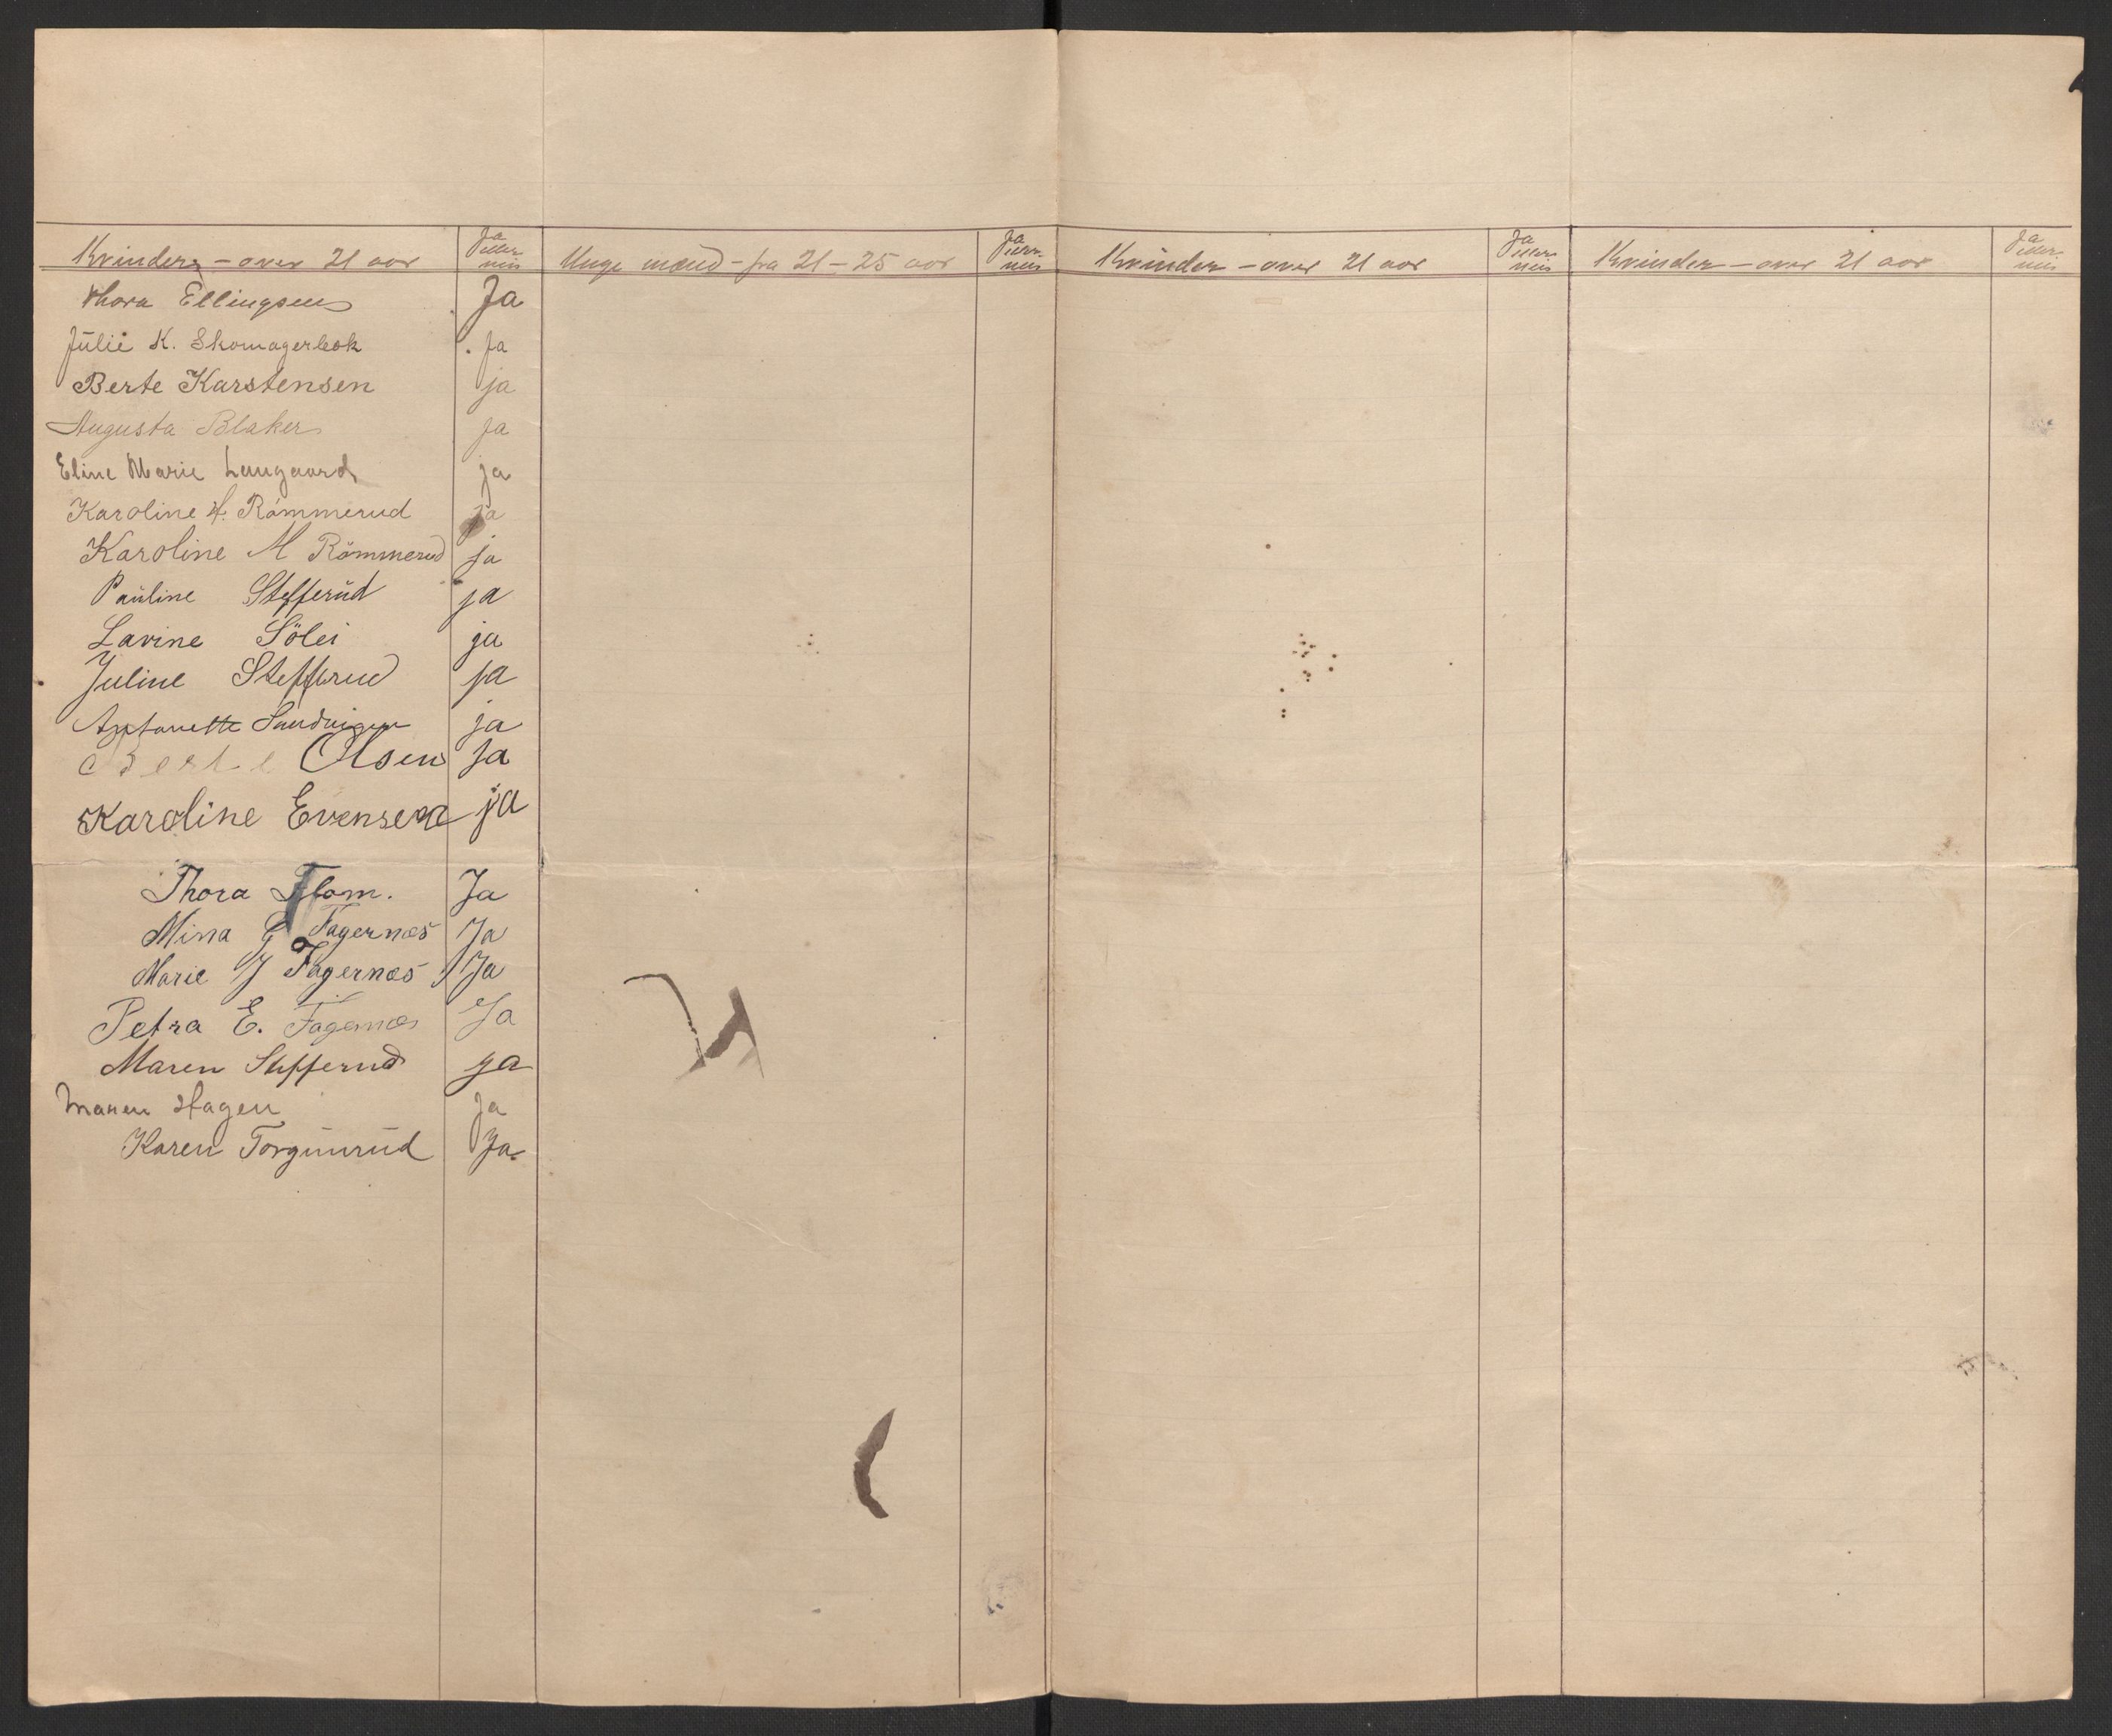 Kvinder - over 21 aar Ja eller nei Unge mænd - fra 21-25 aar Ja eller nei Kvinder - over 21 aar Ja eller nei Kvinder - over 21 aar Ja eller nei
Thora Ellingsen Ja
Julie K. Skomagerbøk Ja
Berte Karstensen ja
Augusta Blaker Ja
Eline Marie Laugaard ja
Karoline H. Rømmerud Ja
Karoline M Römmerud ja
Pauline Stefferud ja
Lavine Sölei ja
Juline Stefferud ja
Antonette Sandvigen ja
Berte Olsen Ja
Karoline Evensen ja
Thora Flom. Ja
Mina G Fagernæs Ja
Marie J Fagernæs Ja
Petra E. Fagernæs Ja
Maren Stefferud ja
Maren Hagen Ja
Karen Torgunrud Ja